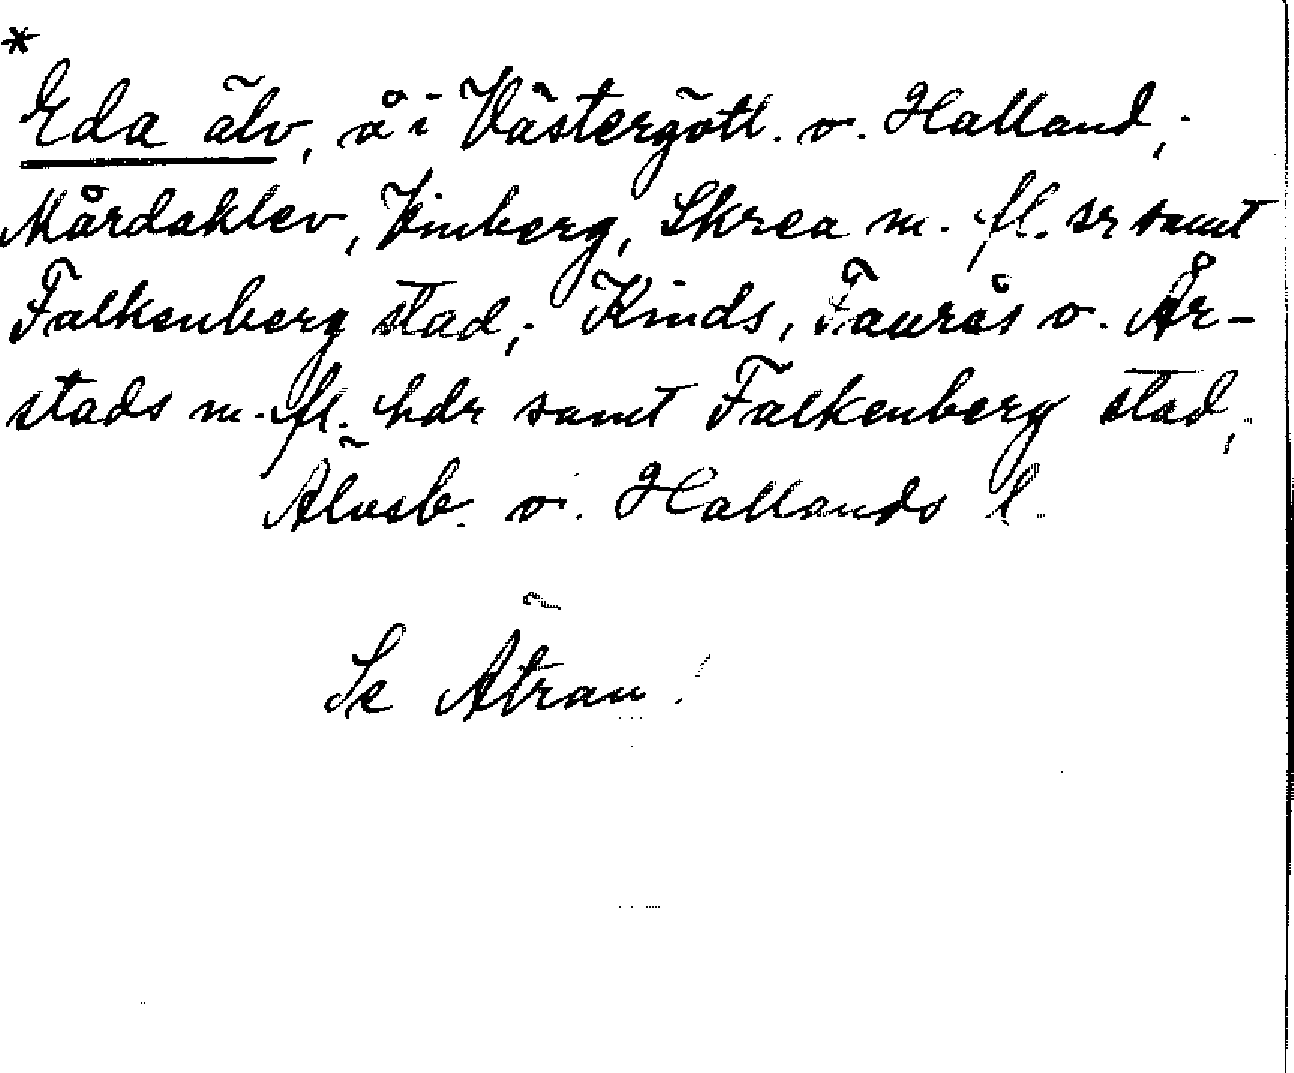 *
Eda älv, å i Västergötl. o. Halland;
Mårdaklev, Vinberg, Skrea m. fl. sr samt
Falkenberg stad; Kinds, Faurås o. År-
stads m. fl. hdr samt Falkenberg stad;
Älvsb. o. Hallands l.
Se Ätran!